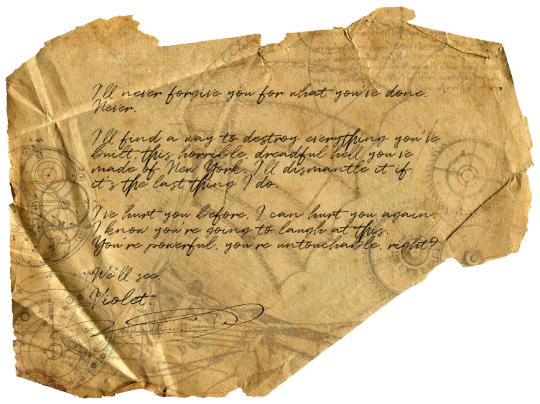 I'll never forgive you for what you've done.
Never.
I'll find a way to destroy everything you've
built, this horrible, dreadful hell you've
made of New York. I'll dismantle it if
it's the last thing I do.
I've hurt you before, I can hurt you again.
I know you're going to laugh at this.
You're powerful, you're untouchable, right?
We'll see.
Violet.